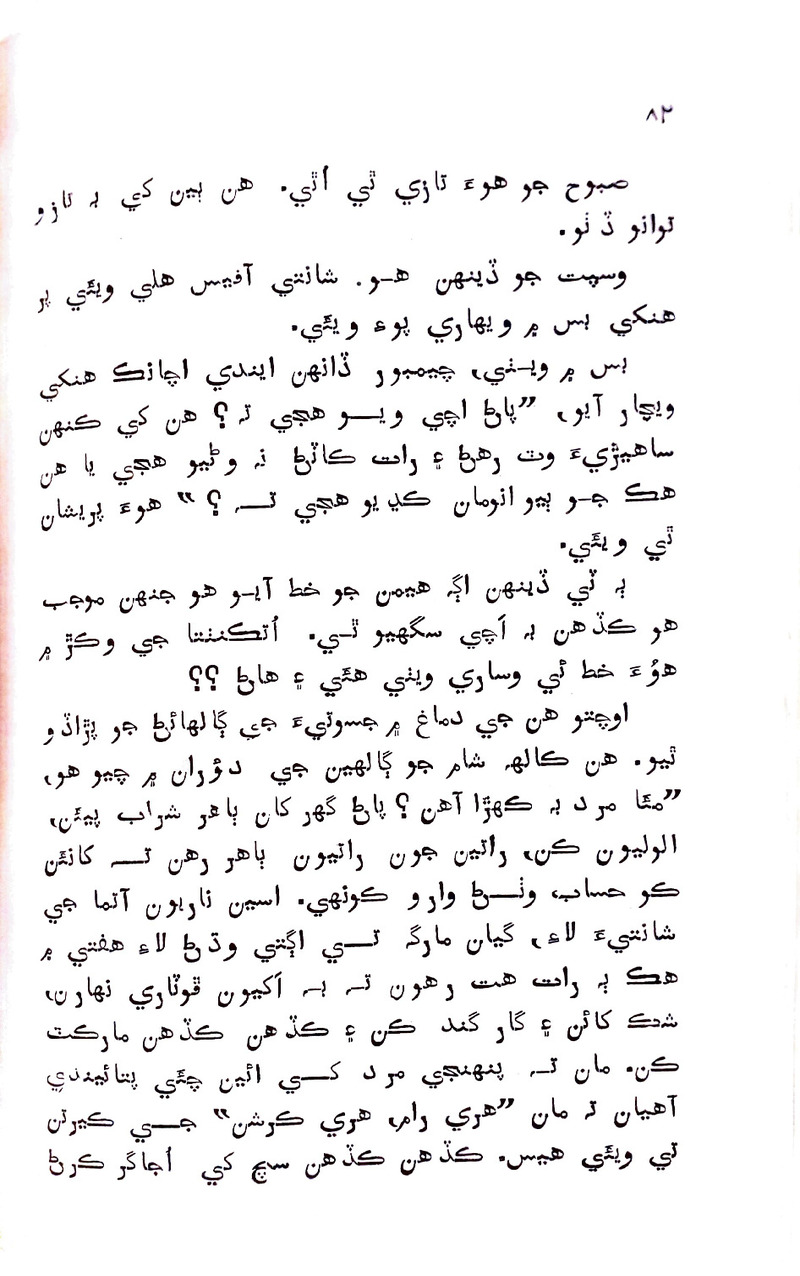 ۸۲
صبوح جو هوءَ تازي ٿي اُٿي. هن ٻين کي بہ تازو
توانو ڏٺو.
وسپت جو ڏينهن هو. شانتي آفيس هلي ويئي پر
هنکي بس ۾ ويهاري پوءِ ويئي.
بس ۾ ويٺي، چيمبور ڏانهن ايندي اچانڪ هنکي
ويچار آيو، ”پاڻ اچي ويو هجي تہ؟ هن کي ڪنهن
ساهيڙيءَ وٽ رهڻ ۽ رات ڪاٽڻ نہ وڻيو هجي يا هن
هڪ جو ٻيو انومان ڪڍيو هجي تہ؟“ هوءَ پريشان
ٿي ويئي.
ٻہ ٽي ڏينهن اڳہ هيمن جو خط آيو هو جنهن موجب
هو ڪڏهن بہ اَچي سگهيو ٿي. اُتڪنٺتا جي وڪڙ ۾
هوُءَ خط ئي وساري ويٺي هئي ۽ هاڻ؟؟
اوچتو هن جي دماغ ۾ جسوتيءَ جي ڳالهائڻ جو پڙاڏو
ٿيو. هن ڪالهہ شام جو ڳالهين جي دؤران ۾ چيو هو،
”مئا مرد بہ ڪهڙا آهن؟ پاڻ گهر کان ٻاهر شراب پيئن،
الوليون ڪن، راتين جون راتيون ٻاهر رهن تہ کانئن
ڪو حساب وٺڻ وارو ڪونهي. اسين ناريون آتما جي
شانتيءَ لاءِ، گيان مارگہ تي اڳتي وڌڻ لاءِ هفتي ۾
هڪ ٻہ رات هت رهون تہ بہ اَکيون ڦوٽاري نهارن،
شڪ کائن ۽ گار گند ڪن ۽ ڪڏهن ڪڏهن مارڪٽ
ڪن. مان تہ پنهنجي مرد کي ائين چئي پتائيندي
آهيان تہ مان ”هري رام، هري ڪرشن“ جي ڪيرتن
تي ويئي هيس. ڪڏهن ڪڏهن سچ کي اُجاگر ڪرڻ